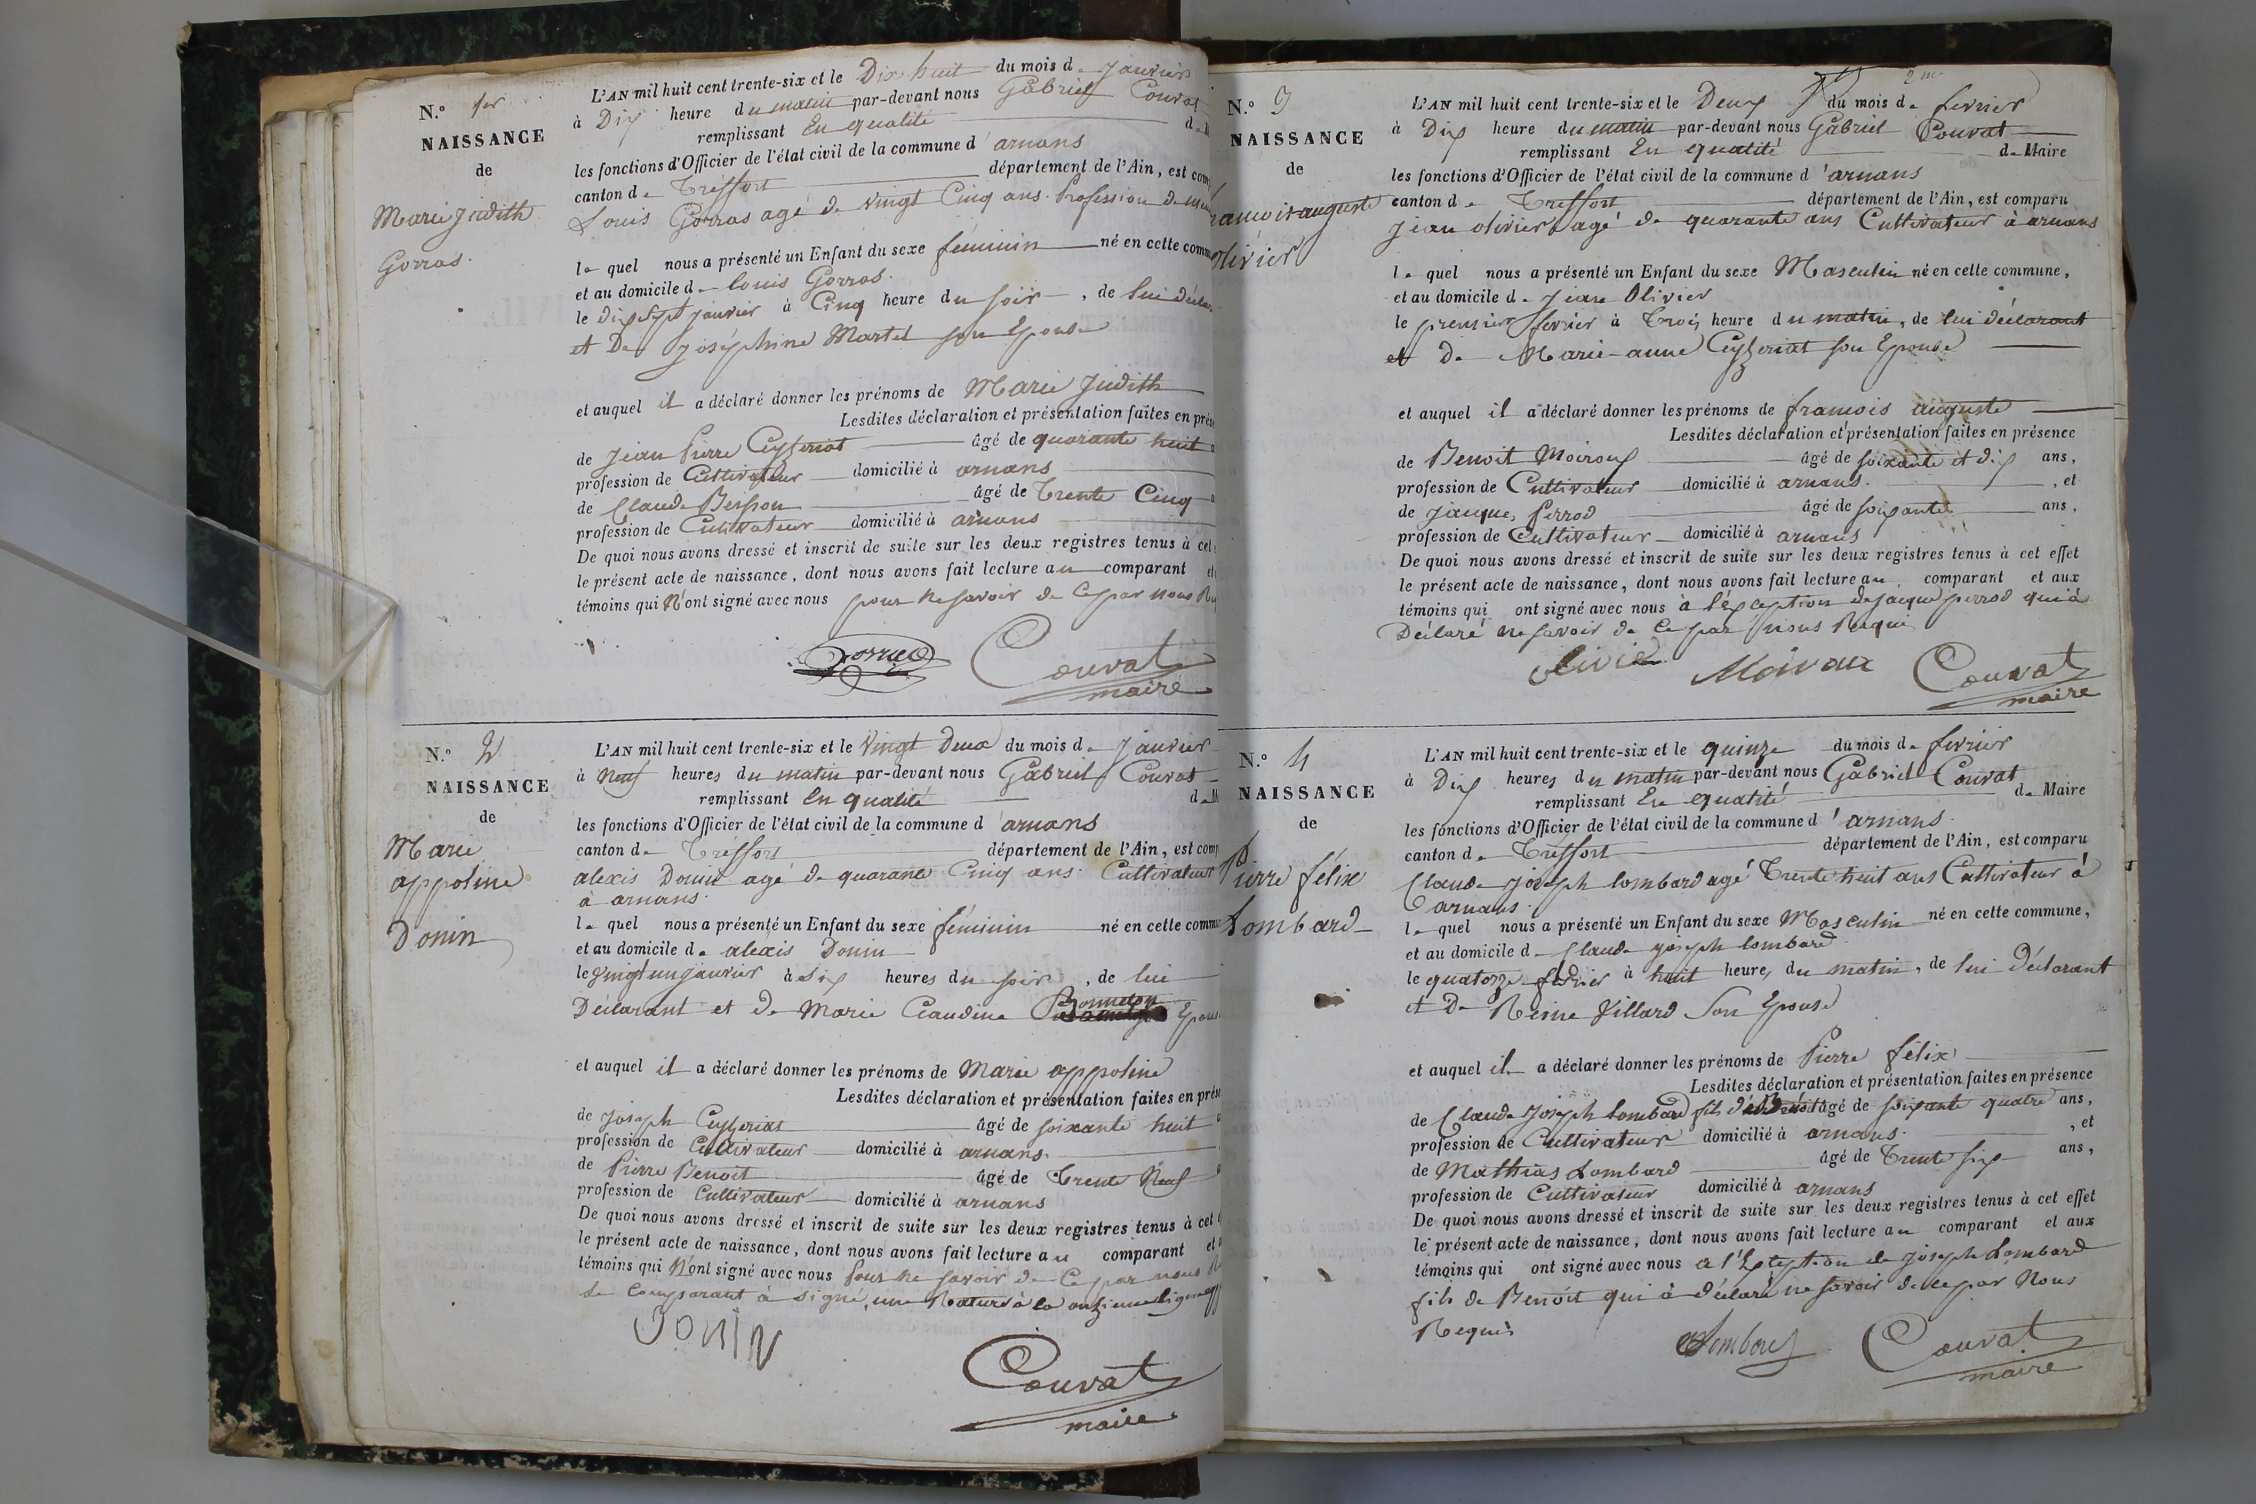 N.° 1er
NAISSANCE
de
Marie Judith
Gorras.
L'AN mil huit cent trente-six et le Dix huit du mois de Janvier
à Dix heure du matin par-devant nous Gabriel Couvat
remplissant En qualité d
les fonctions d'Officier de l'état civil de la commune d'arnans
canton de Treffort département de l'Ain, est com
Louis Gorras agé de vingt Cinq ans. Profession de
le quel nous a présenté un Enfant du sexe féminin né en cette comm
et au domicile de louis Gorras.
le dix sept janvier à Cinq heure du soir, de lui déclar
et De joséphine Martel son Epouse
et auquel il a déclaré donner les prénoms de Marie Judith
Lesdites déclaration et présentation faites en prés
de Jean Pierre Ceyzeriat âgé de quarante huit
profession de Cultivateur domicilié à arnans
de Claude Berthon âgé de Trente Cinq
profession de Cultivateur domicilié à arnans
De quoi nous avons dressé et inscrit de suite sur les deux registres tenus à cet
le présent acte de naissance, dont nous avons fait lecture au comparant et
témoins qui N'ont signé avec nous pour ne savoir de ce par nous
Couvat
maire
N.° 2
NAISSANCE
de
Marie
appoline
Donin
L'AN mil huit cent trente-six et le Vingt Deux du mois de Janvier
à Neuf heures du matin par-devant nous Gabriel Couvat
remplissant En qualité d
les fonctions d'Officier de l'état civil de la commune d'arnans
canton de Treffort département de l'Ain, est comp
alexis Donin agé de quarante Cinq ans. Cultivateur
à arnans.
le quel nous a présenté un Enfant du sexe féminin né en cette commu
et au domicile de alexis Donin
le vingt un janvier à Six heures du soir, de lui
Déclarant et de Marie Claudine Epous
et auquel il a déclaré donner les prénoms de Marie appoline
Lesdites déclaration et présentation faites en prése
de Joseph Ceyzeriat âgé de soixante huit
profession de Cultivateur domicilié à arnans.
de Pierre Benoit âgé de Trente Neuf
profession de Cultivateur domicilié à arnans
De quoi nous avons dressé et inscrit de suite sur les deux registres tenus à cet
le présent acte de naissance, dont nous avons fait lecture au comparant et
témoins qui N'ont signé avec nous pour ne savoir de Ce par nous
Le Comparant à signé, une Rature à la onzieme ligne
DONIN
Couvat
maire
N.° 3
NAISSANCE
de
ancois auguste
olivier
2me
L'AN mil huit cent trente-six et le Deux du mois de fevrier
à Dix heure du matin par-devant nous Gabriel Couvat
remplissant En qualité de Maire
les fonctions d'Officier de l'état civil de la commune d'arnans
canton de Treffort département de l'Ain, est comparu
Jean olivier agé de quarante ans Cultivateur à arnans
le quel nous a présenté un Enfant du sexe Masculin né en cette commune,
et au domicile de Jean Olivier
le premier fevrier à Trois heure du matin, de lui déclarant
et de Marie-anne Ceyzeriat son Epouse
et auquel il a déclaré donner les prénoms de francois auguste
Lesdites déclaration et présentation faites en présence
de Benoit Moiroux âgé de soixante et dix ans,
profession de Cultivateur domicilié à arnans., et
de Jacques Perrod âgé de soixante ans,
profession de Cultivateur domicilié à arnans
De quoi nous avons dressé et inscrit de suite sur les deux registres tenus à cet effet
le présent acte de naissance, dont nous avons fait lecture au comparant et aux
témoins qui ont signé avec nous à l'exception de Jacque perrod qui à
Déclaré ne savoir de Ce par Nous Requi
olivie Moiroux Couvat
maire
N.° 4
NAISSANCE
de
Pierre félix
Lombard
L'AN mil huit cent trente-six et le quinze du mois de fevrier
à Dix heures du matin par-devant nous Gabriel Couvat
remplissant En qualité de Maire
les fonctions d'Officier de l'état civil de la commune d'arnans.
canton de Treffort département de l'Ain, est comparu
Claude Joseph lombard agé Trente huit ans Cultivateur à
arnans.
le quel nous a présenté un Enfant du sexe Masculin né en cette commune,
et au domicile de Claude joseph lombard
le quatorze fevrier à huit heures du matin, de lui Déclarant
et De Reine Villard Son Epouse
et auquel il a déclaré donner les prénoms de Pierre félix
Lesdites déclaration et présentation faites en présence
de Claude Joseph Lombard fils de Benoit âgé de soixante quatre ans,
profession de Cultivateur domicilié à arnans., et
de Mathias Lombard âgé de Trente six ans,
profession de Cultivateur domicilié à arnans
De quoi nous avons dressé et inscrit de suite sur les deux registres tenus à cet effet
le présent acte de naissance, dont nous avons fait lecture au comparant et aux
témoins qui ont signé avec nous à l'Exception de Joseph Lombard
fils de Benoit qui à déclaré ne savoir de ce par Nous
Requis
Lombard Couvat
maire